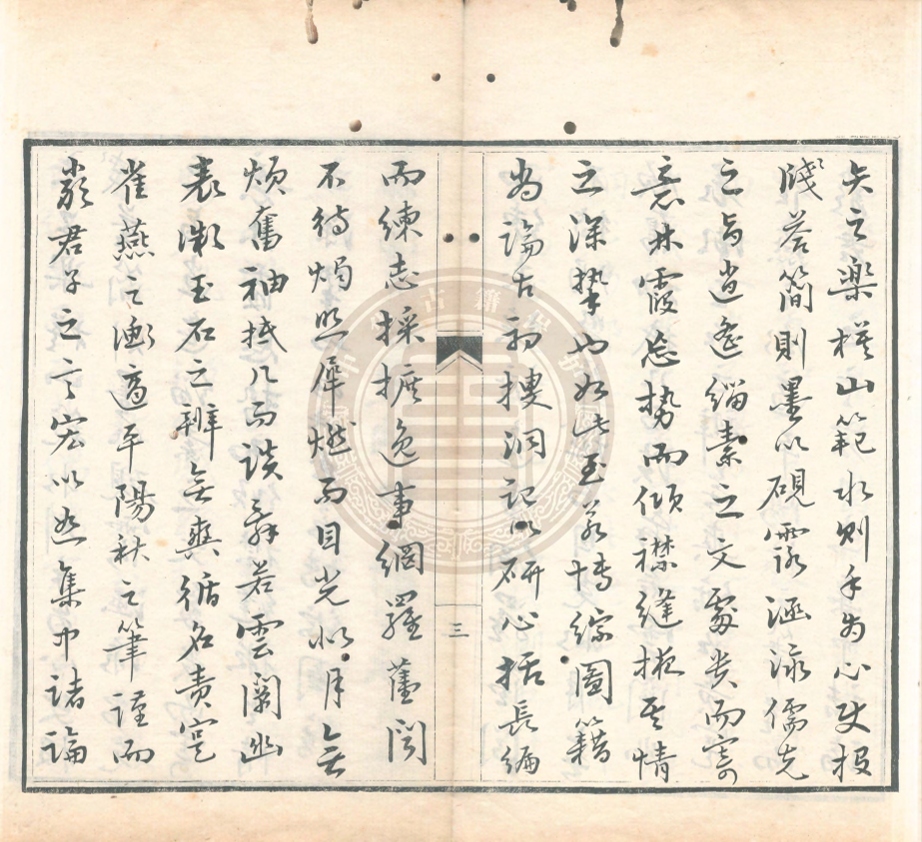 矢之樂模山範水則手為心史投
牋答簡則墨以硯露涵泳儒先
之旨逍遙緇素之文處貴而寄
意林霞忘勢而傾襟縫掖其情
之深摯也如此至若博綜圖籍
尚論古初搜洞記以研心括長編
而練志採摭逸事網羅舊聞
不待燭照犀燃而目光似月無
煩奮袖抵几而談舞若雲闡幽
表微玉石之辨無爽循名責寔
雀燕之衡適平陽秋之筆謹而
嚴君子之言宏以遠集中諸論
三